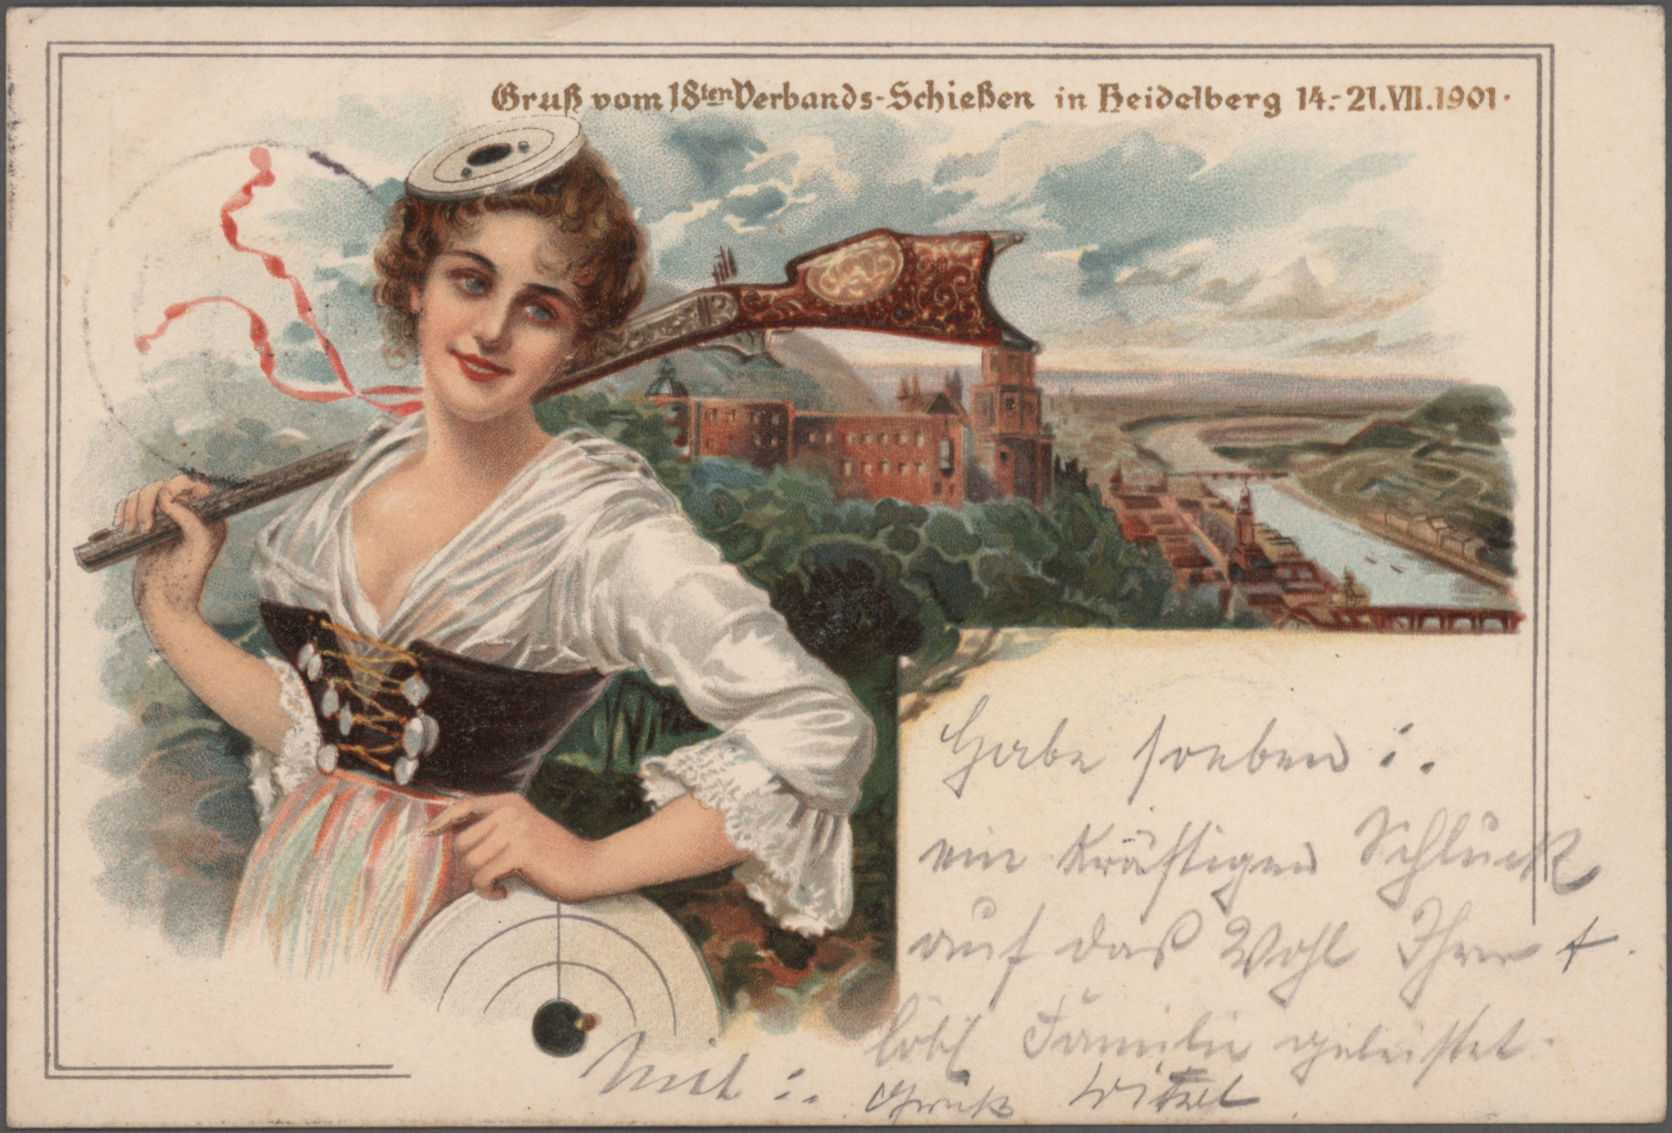 Gruß vom 18ten Verbands-Schießen in Heidelberg 14.-21.VII.1901.
Habe soeben :.
ein kräftigen Schluck
auf das Wohl Ihrer
löbl Familie geleistet.
Mit :. Gruß